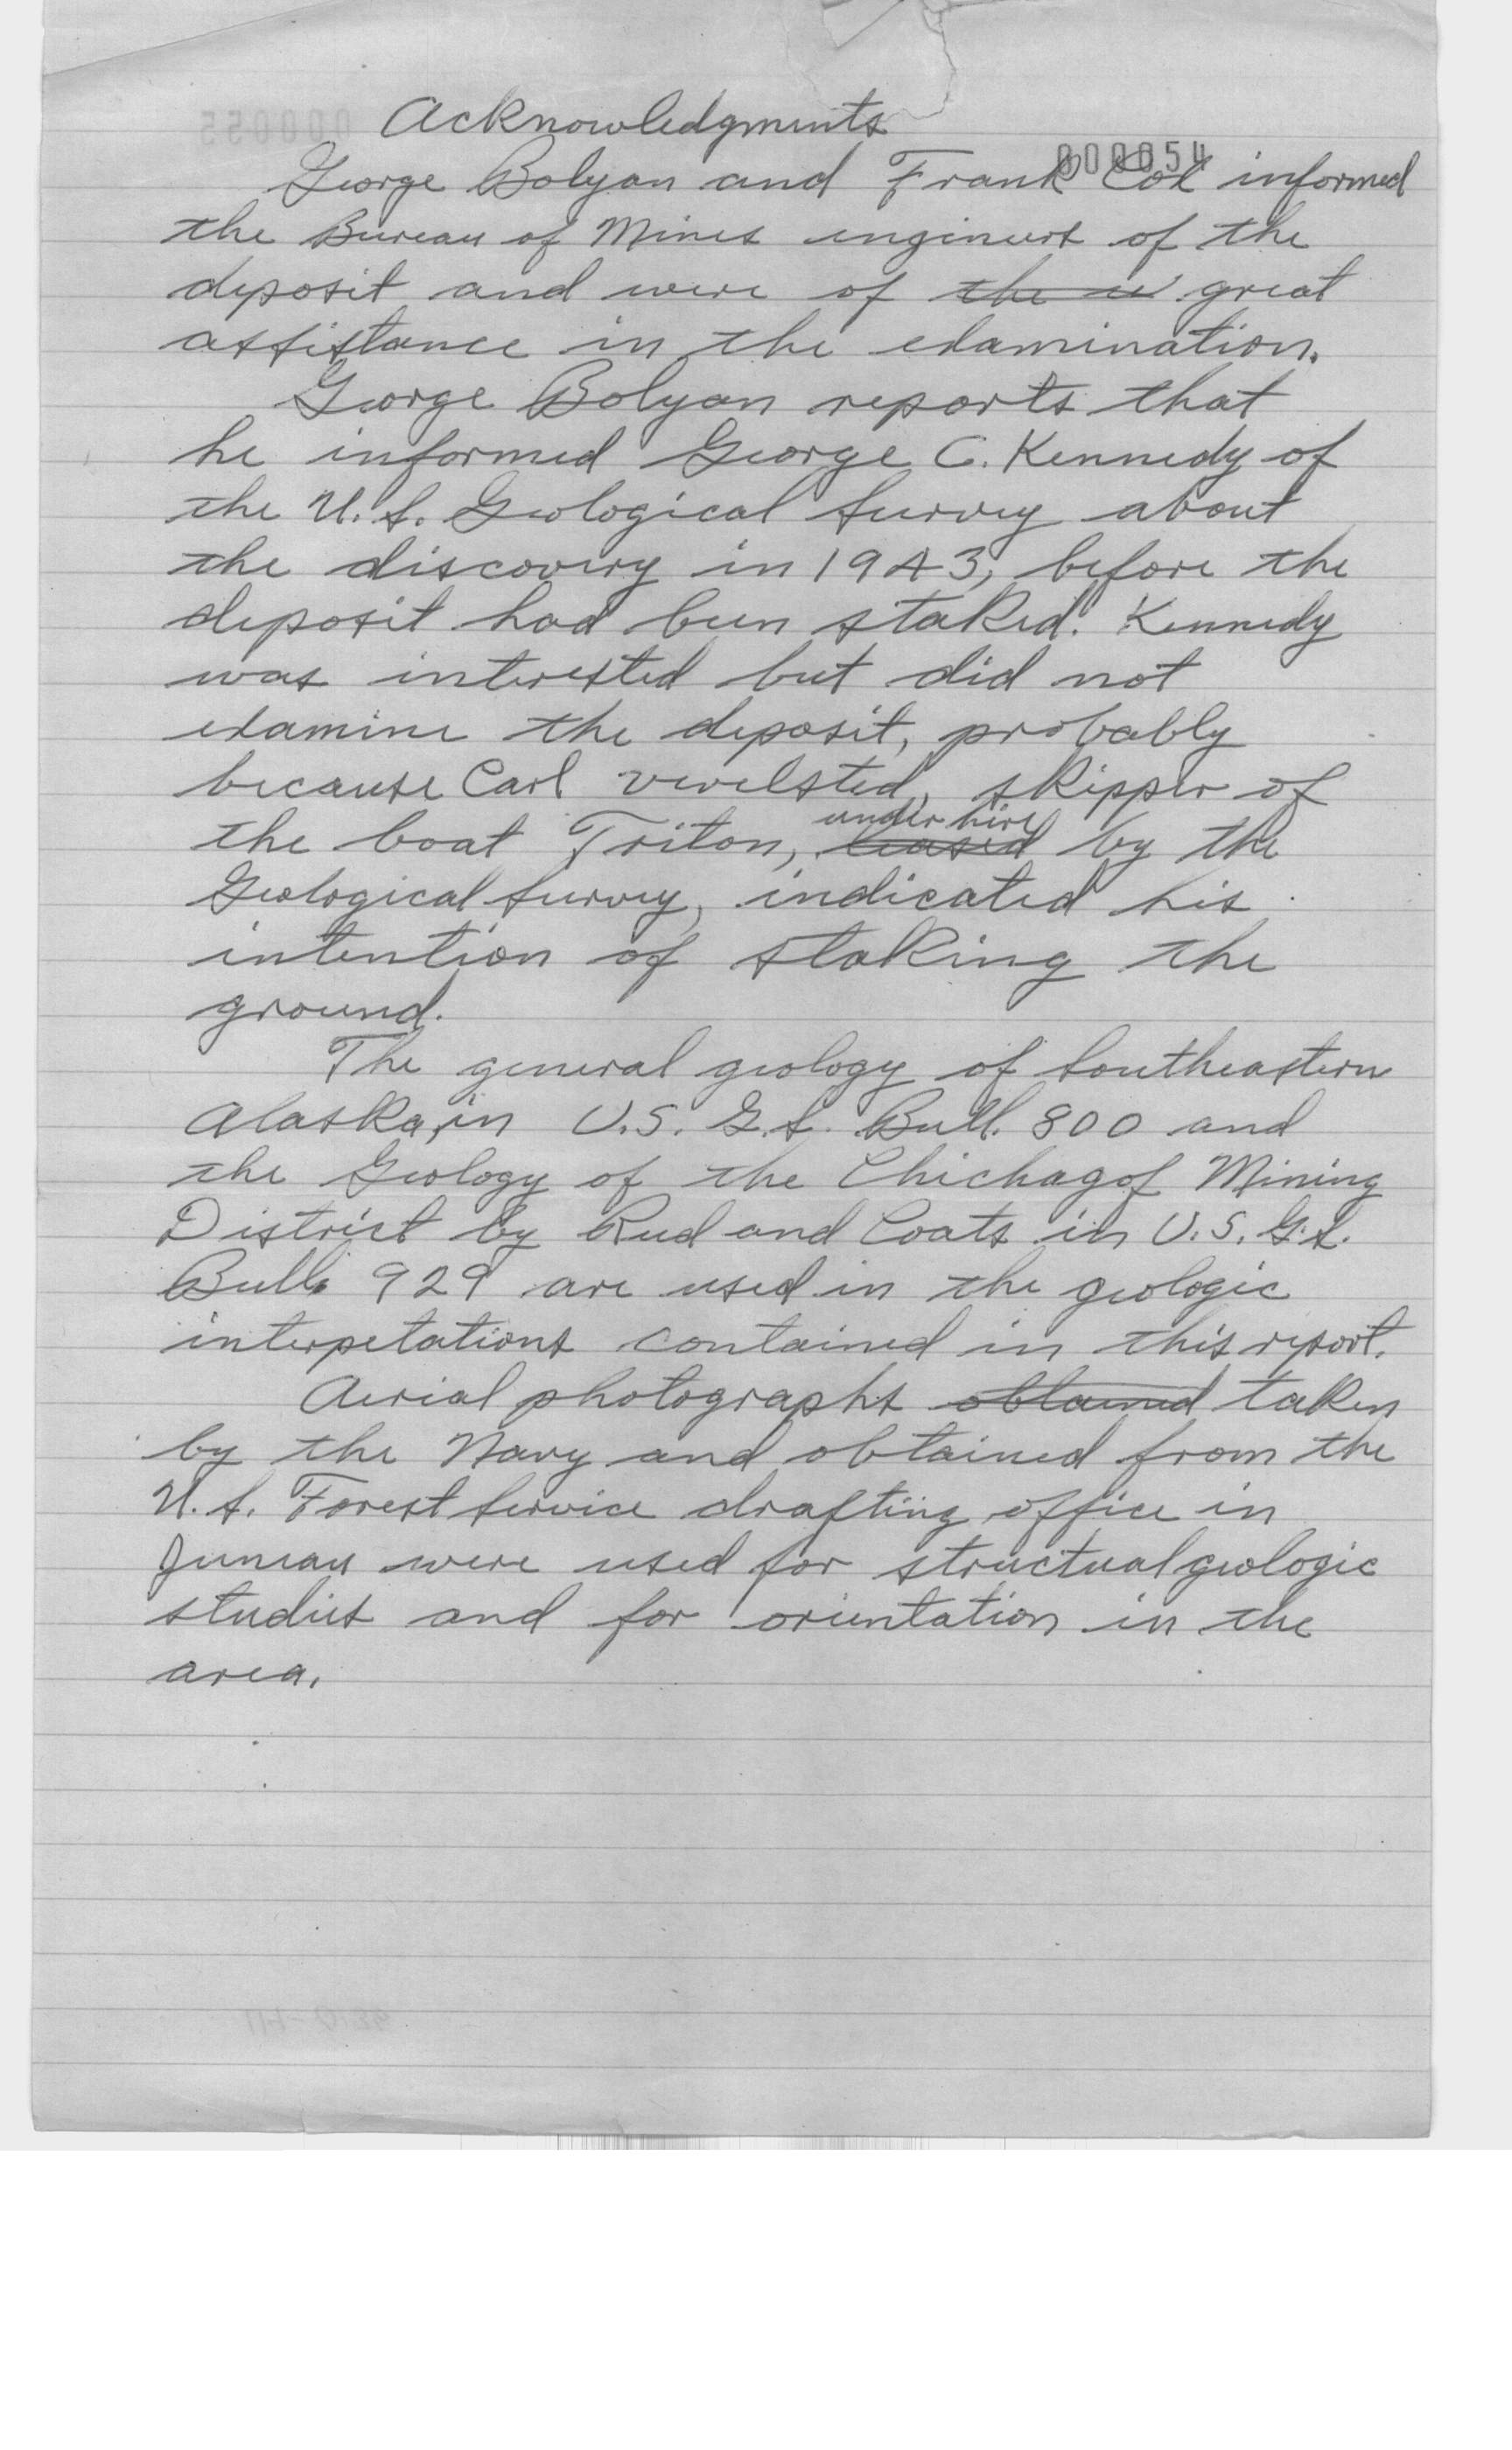 Acknowledgments
000054
George Bolyan and Frank Cox informed
the Bureau of Mines engineers of the
deposit and were of the u great
assistance in the examination.
George Bolyan reports that
he informed George C. Kennedy of
the U.S. Geological Survey about
the discovery in 1943, before the
deposit had been staked. Kennedy
was interested but did not
examine the deposit, probably
because Carl Vevelsted, skipper of
under hire
the boat Triton, leased by the
Geological Survey, indicated his
intention of staking the
ground.
The general geology of Southeastern
Alaska, in U.S.G.S. Bull. 800 and
the Geology of the Chichagof Mining
District by Reed and Coats in U.S.G.S.
Bull. 929 are used in the geologic
interpetations contained in this report.
Aerial photographs obtained taken
by the Navy and obtained from the
U.S. Forest Service drafting office in
Juneau were used for structual geologic
studies and for orientation in the
area.